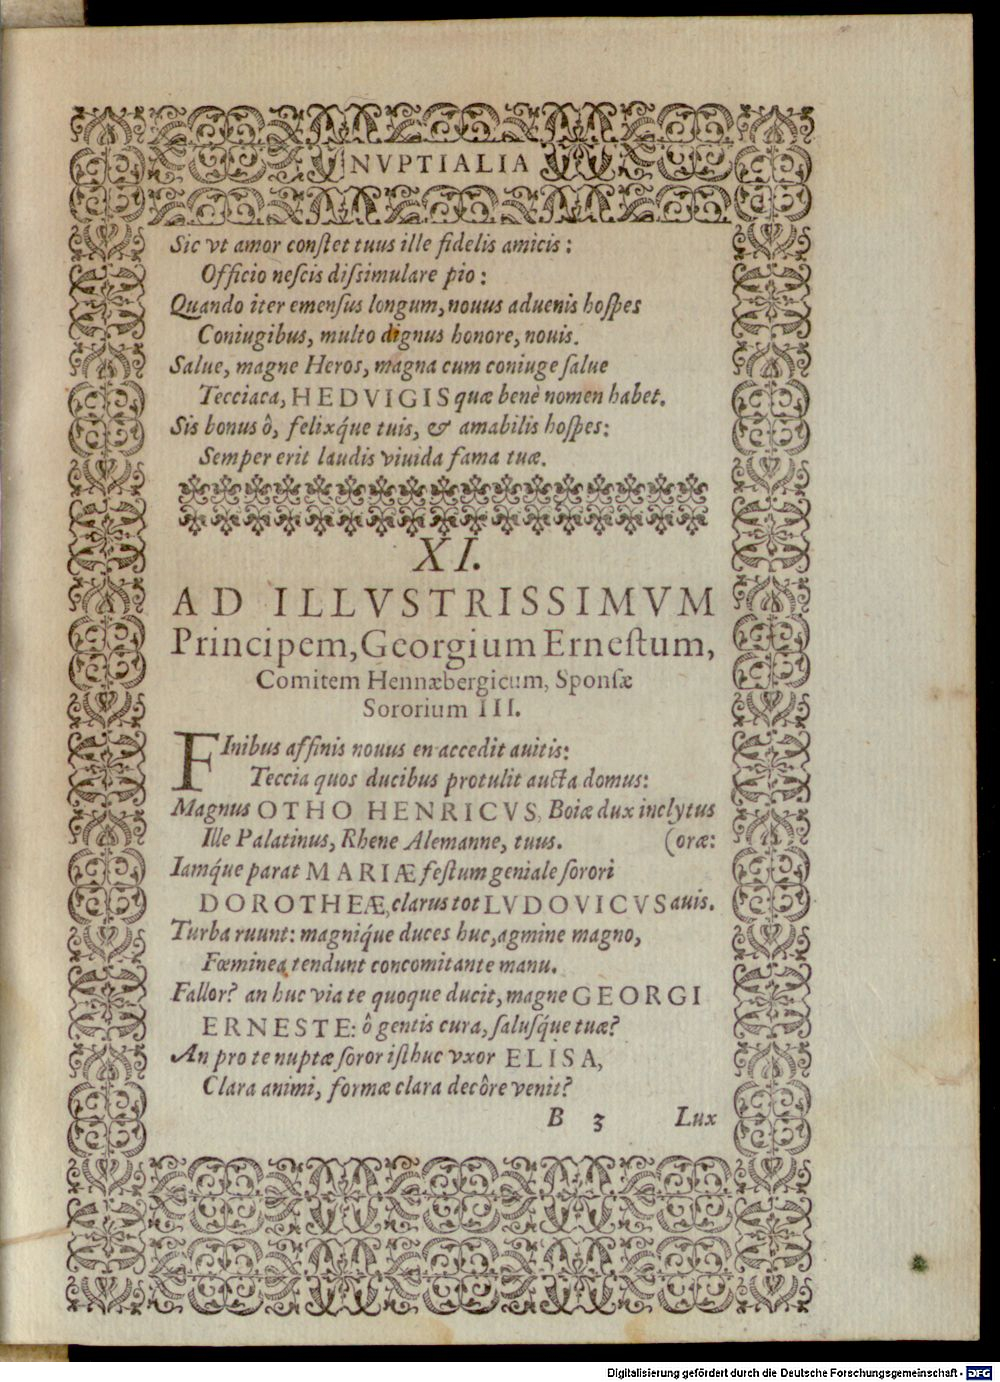 NVPTIALIA
Sic vt amor conſtet tuus ille fidelis amicis:
Officio neſcis diſsimulare pio:
Quando iter emenſus longum, nouus aduenis hoſpes
Coniugibus, multo dignus honore, nouis.
Salue, magne Heros, magna cum coniuge ſalue
Tecciaca, HEDVIGIS quæ benè nomen habet.
Sis bonus ô, felixq́ue tuis, & amabilis hoſpes:
Semper erit laudis viuida fama tuæ.
XI.
AD ILLVSTRISSIMVM
Principem, Georgium Erneſtum,
Comitem Hennæbergicum, Sponſæ
Sororium III.
FInibus affinis nouus en accedit auitis:
Teccia quos ducibus protulit aucta domus:
Magnus OTHO HENRICVS, Boiæ dux inclytus
Ille Palatinus, Rhene Alemanne, tuus. (oræ:
Iamq́ue parat MARIÆ feſtum geniale ſorori
DOROTHEÆ, clarus tot LVDOVICVS auis.
Turba ruunt: magniq́ue duces huc, agmine magno,
Fœminea tendunt concomitante manu.
Fallor? an huc via te quoque ducit, magne GEORGI
ERNESTE: ô gentis cura, ſaluſq́ue tuæ?
An pro te nuptæ ſoror iſthuc vxor ELISA,
Clara animi, formæ clara decôre venit?
B 3 Lux
Digitalisierung gefördert durch die Deutsche Forschungsgemeinschaft - DFG